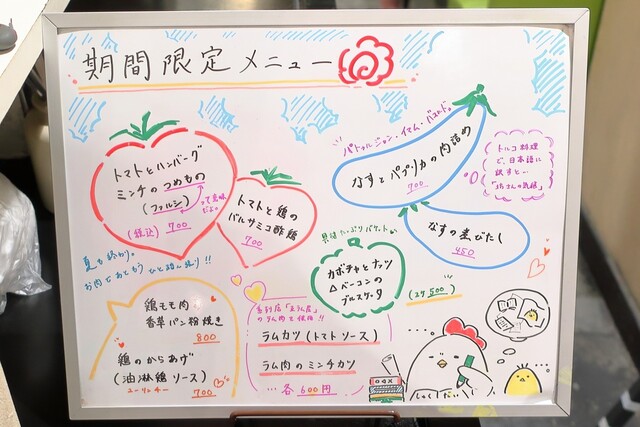 期間限定メニュー
トマトとハンバーグ
ミンチのつめもの
(ファルシ)
って意味
だよ。
(税込) 700
トマトと鶏の
バルサミコ酢鶏
700
パトゥルジャン・イマム・バユルドゥ
なすとパプリカの肉詰め
700
トルコ料理
で、日本語に
訳すと…
"坊さんの気絶"
なすの煮びたし
450
具材たっぷりバケット
カボチャとナッツ
ベーコンの
ブルスケッタ
(2ケ 500)
夏も終わり。
お肉でおもう
鶏もも肉
香草パン粉焼き
800
鶏のからあげ
(油淋鶏ソース)
ユーリンチー
700
系列店
のラム肉を使用!!
ラムカツ (トマトソース)
ラム肉のミンチカツ
各600円
しゅくだい